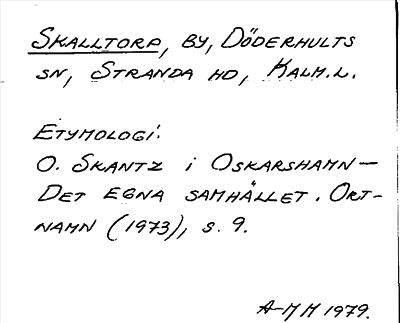 SKALLTORP, BY, DÖDERHULTS
SN, STRANDA HD, KALM.L.
ETYMOLOGI:
O. SKANTZ i OSKARSHAMN—
DET EGNA SAMHÄLLET. ORT-
NAMN (1973), S. 9.
A-MH 1979.